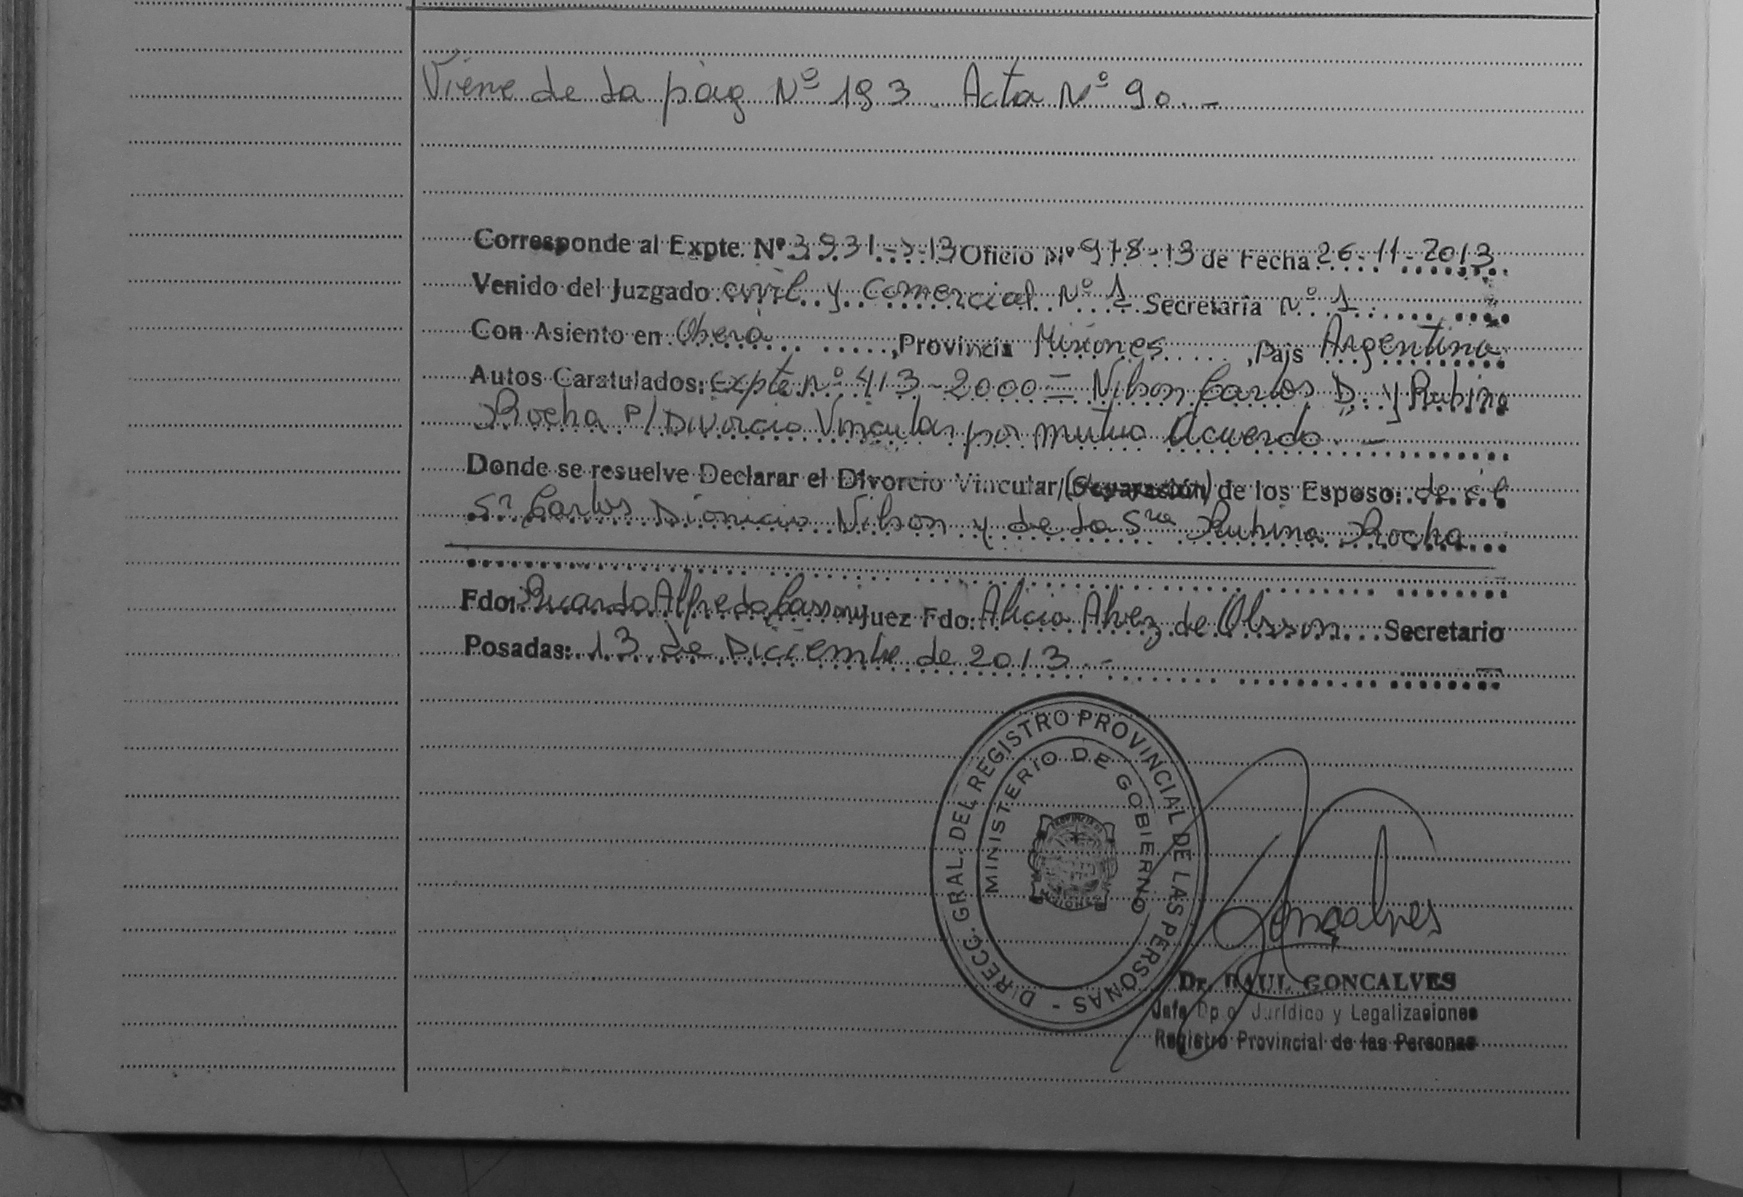 Viene de la pág Nº 193. Acta Nº 90.-
Corresponde al Expte. Nº 3931-S-13 Oficio Nº 978-13 de Fecha 26-11-2013
Venido del Juzgado civil y Comercial Nº 1 Secretaría nº 1
Con Asiento en Oberá, Provincia Misiones, País Argentina
Autos Caratulados: Expte nº 413-2000= Nilson Carlos D. y Rubina
Rocha P/ Divorcio Vincular por mutuo Acuerdo.-
Donde se resuelve Declarar el Divorcio Vincular/(Separación) de los Esposo: de el
Sr Carlos Dionicio Nilson y de la Sra Rubina Rocha
Fdo: Ricardo Alfredo Juez Fdo: Alicia Alvez de Olsson Secretario
Posadas: 13 de Diciembre de 2013.-
DIRECC. GRAL. DEL REGISTRO PROVINCIAL DE LAS PERSONAS -
MINISTERIO DE GOBIERNO
Gonçalves
Dr. RAUL GONCALVES
Jefe Dpto. Jurídico y Legalizaciones
Registro Provincial de las Personas